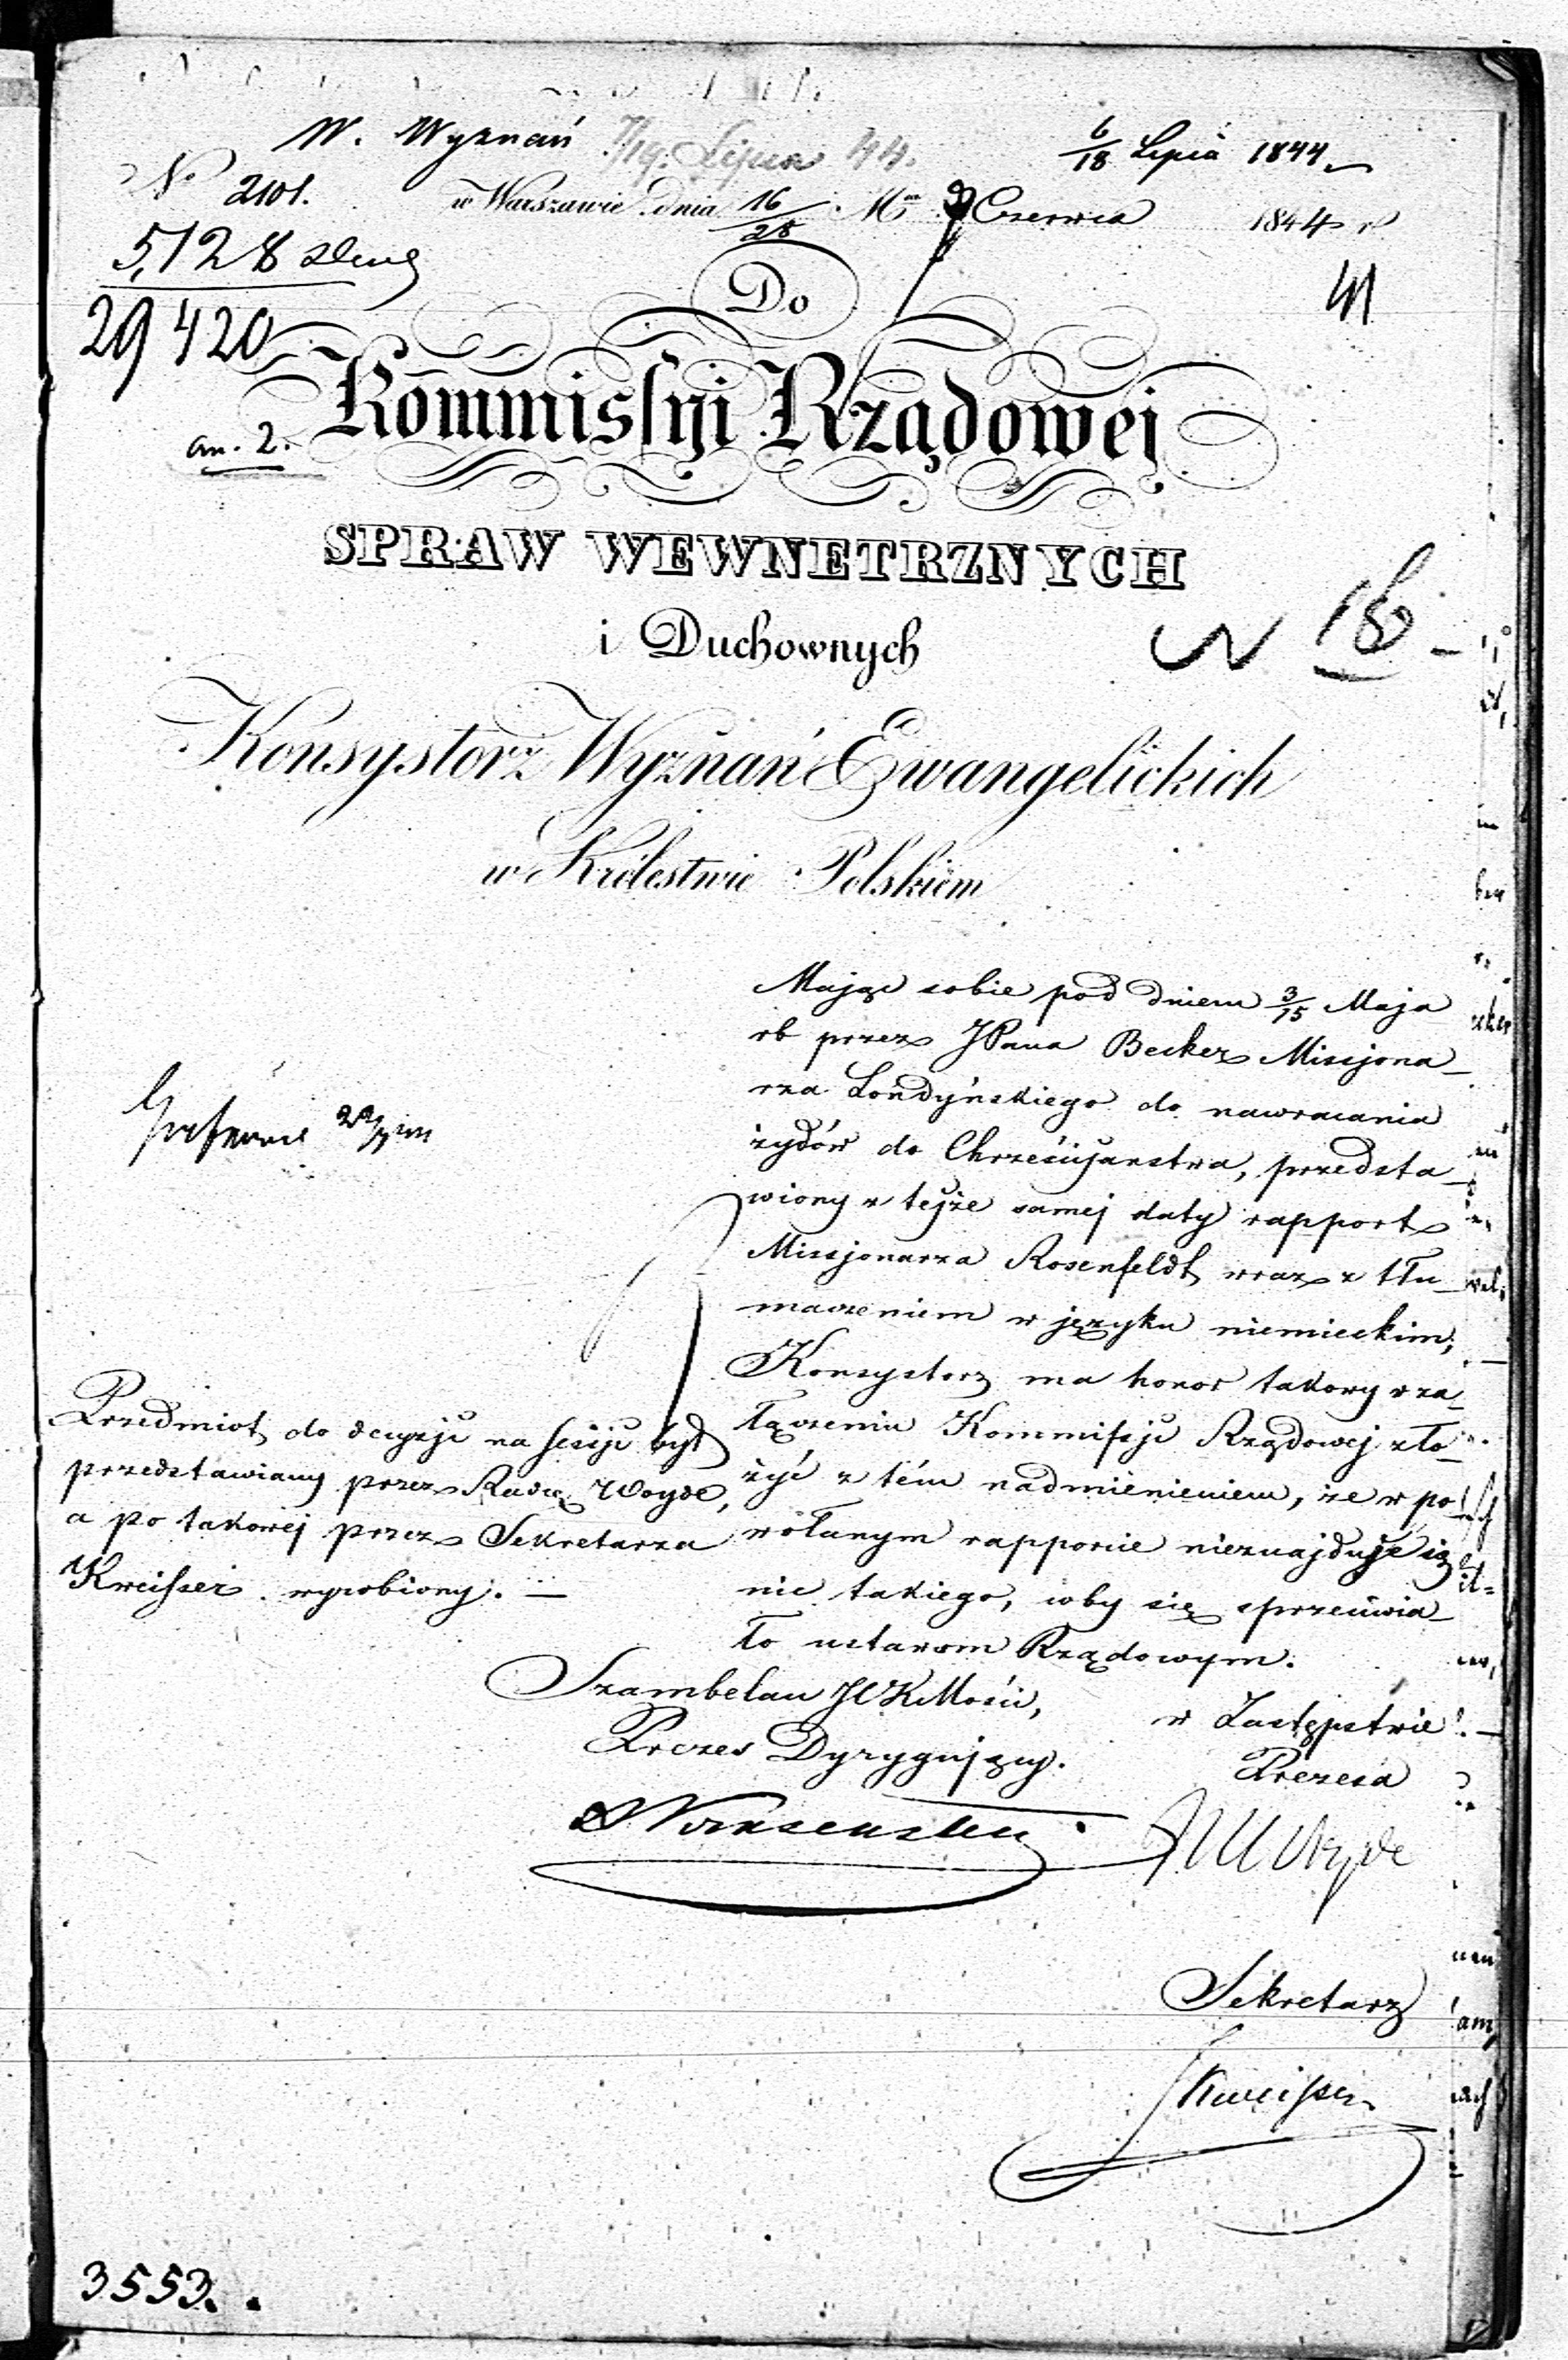 W. Wyznań 7/19. Lipca 44. 6/18 Lipca 1844
No 2101. w Warszawie dnia 16/28 Mca Czerwca 1844 r
5,128
29420
Do
41
Kommissyi Rządowej
an. 2.
SPRAW WEWNETRZNYCH
i Duchownych
18
Konsystorz Wyznań Ewangelickich
w Królestwie Polskiem
Mając sobie pod dniem 3/15 Maja
rb przez JPana Becker Missjona-
rza Londyńskiego do nawracania
żydów do Chrześcijaństwa, przedsta-
wiony w tejże samej daty rapport
Missjonarza Rosenfeldt wraz z tłu-
maczeniem w języku niemieckim,
Konsystorz ma honor takowy w za-
łączeniu Kommissji Rządowej zło-
żyć z tém nadmienieniem, że w po-
wołanym rapporcie nieznajduje się
nic takiego, coby się sprzeciwia-
ło ustawom Rządowym.
Przedmiot do decyzji na sessji był
przedstawiany przez Radcę Woyde,
a po takowej przez Sekretarza
Kweisser wyrobiony. —
Szambelan JCKMości,
Prezes Dyrygujący.
w Zastępstwie
Prezesa
Woyde
Sekretarz
Kweisser
3553.